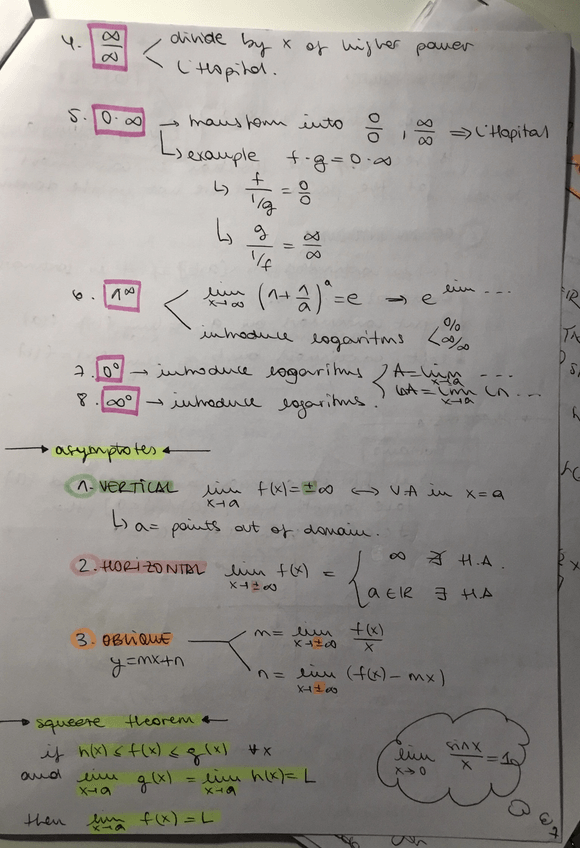 4. ∞/∞ < divide by x of higher power
L'Hopital.
5. 0·∞ → transform into 0/0, ∞/∞ ⇒ L'Hopital
↳ example f·g = 0·∞
↳ f/(1/g) = 0/0
↳ g/(1/f) = ∞/∞
6. 1^∞ < lim x→∞ (1+1/a)^a = e → e^lim ...
introduce logaritms < 0/0 ∞/∞
7. 0⁰ → introduce logaritms < A = lim x→a ...
8. ∞⁰ → introduce logaritms. lnA = lim x→a ln ...
→ asymptotes ←
1. VERTICAL lim x→a f(x) = ±∞ ⟷ V.A in x=a
↳ a = points out of domain.
2. HORIZONTAL lim x→±∞ f(x) = { ∞ ∄ H.A.
a ∈ ℝ ∃ H.A
3. OBLIQUE < m = lim x→±∞ f(x)/x
y=mx+n n = lim x→±∞ (f(x) - mx)
→ squeeze theorem ←
if h(x) ≤ f(x) ≤ g(x) ∀x
and lim x→a g(x) = lim x→a h(x) = L
then lim x→a f(x) = L
lim x→0 sinx/x = 1